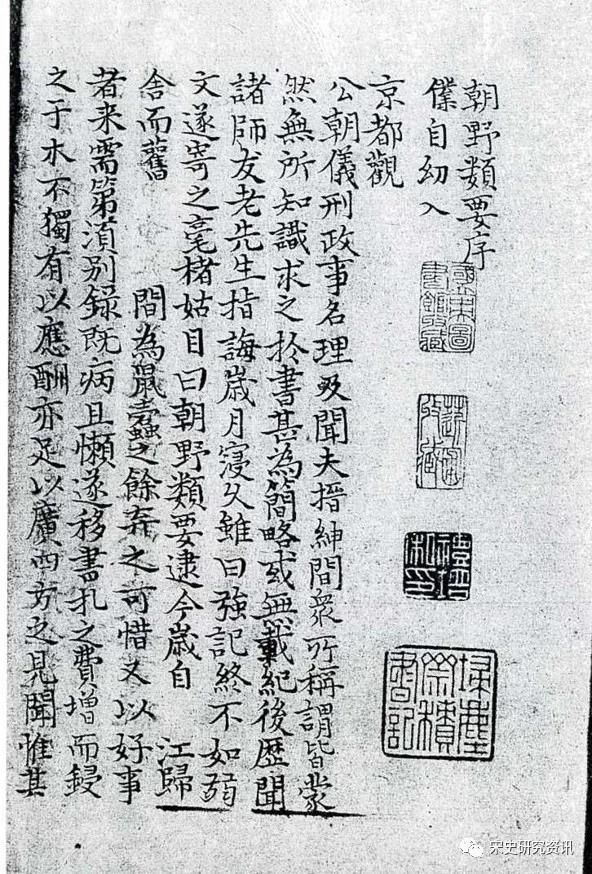 朝野類要序
僕自幼入
京都觀
公朝儀刑政事名理及聞夫搢紳間衆所稱謂皆蒙
然無所知識求之扵書甚為簡略或無載紀後歷聞
諸師友老先生指誨歲月寖久雖曰強記終不如弱
文遂寄之毫楮姑目曰朝野類要逮今歲自 江歸
舍而舊 間為鼠蠹之餘弃之可惜又以好事
者来需第湏別錄既病且懶遂移書扎之費增而鋟
之于木不獨有以應酬亦足以廣四方之見聞惟其
禮培私印
掃塵齋積書記
宋史研究资讯